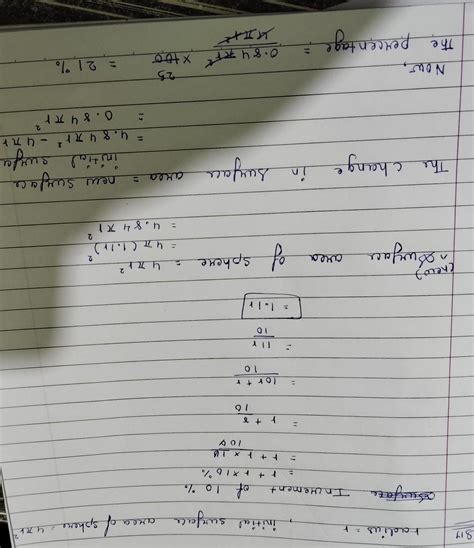 317 radius = r, initial surface area of sphere = 4πr²
Increment of 10%.
= r + r × 10%
= r + r × 10/100
= r + r/10
= 10r + r/10
= 11r/10
= 1.1r
(new) Surface area of sphere = 4πr²
= 4π(1.1r)²
= 4.84πr²
The change in surface area = new surface
initial surfa
= 4.84πr² - 4πr
= 0.84πr²
Now,
The percentage = 0.84πr²/4πr² × 100 = 21%